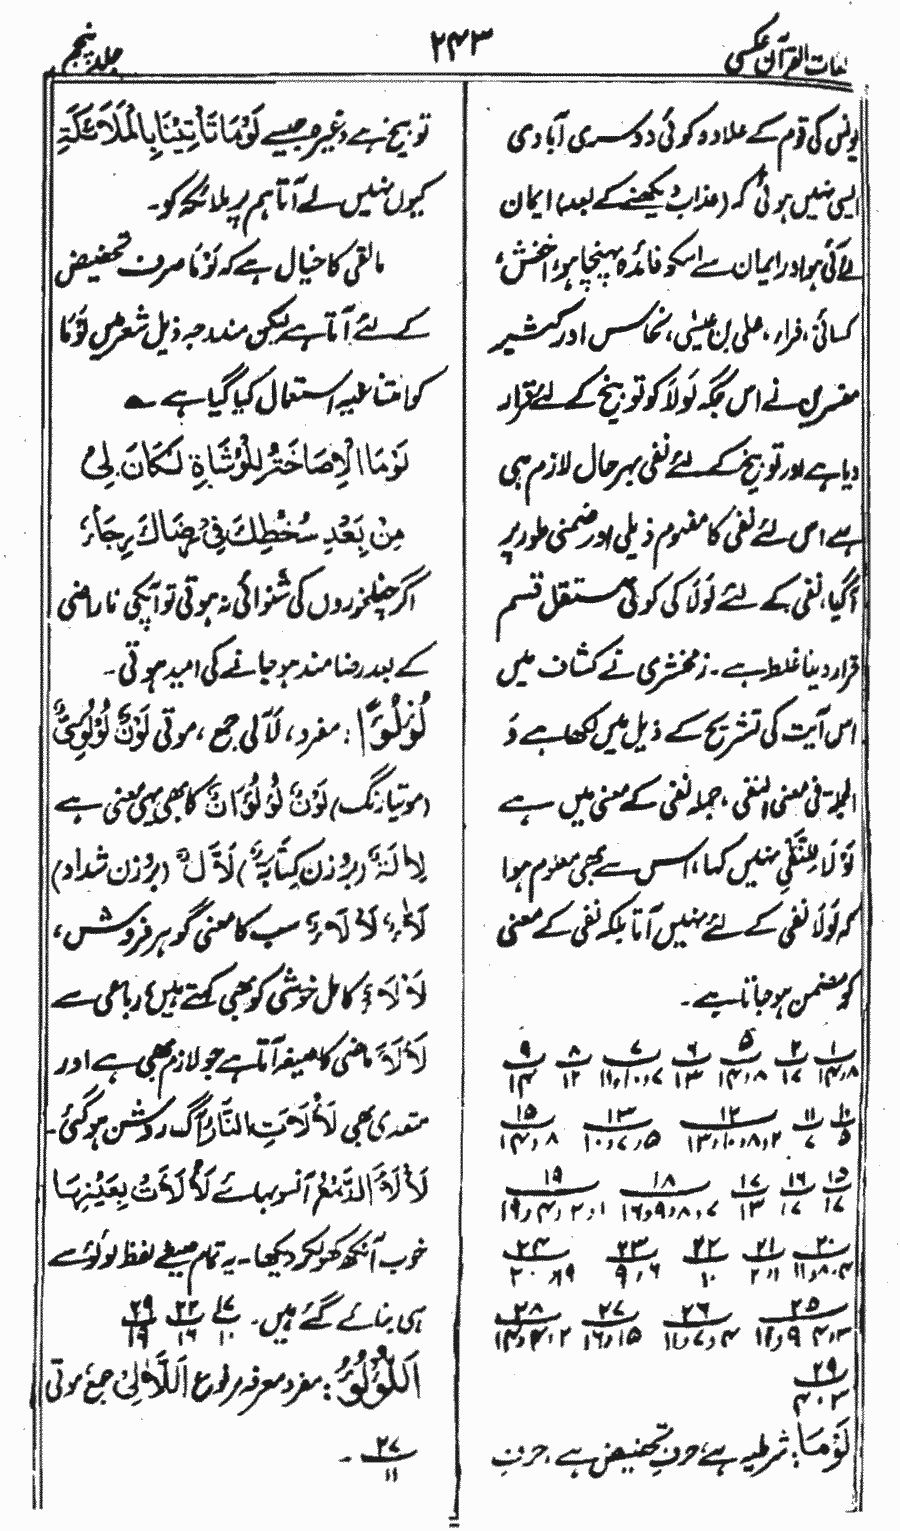 لغات القرآن عکسی
۲۴۳
جلد پنجم
یونس کی قوم کے علاوہ کوئی دوسری آبادی
ایسی نہیں ہوئی کہ (عذاب دیکھنے کے بعد) ایمان
لے آئی ہو اور ایمان سے اسکو فائدہ پہنچا ہو، اخفش،
کسائی، فراء، علی بن عیسٰی، نحاس اور کثیر
مفسرین نے اس جگہ لَولَا کو توبیخ کے لئے قرار
دیا ہے اور توبیخ کے لئے نفی بہرحال لازم ہی
ہے اس لئے نفی کا مفہوم ذیلی اور ضمنی طور پر
آگیا، نفی کے لئے لَولَا کی کوئی مستقل قسم
قرار دینا غلط ہے۔ زمخشری نے کشاف میں
اس آیت کی تشریح کے ذیل میں لکھا ہے وَ
الجملة فی معنی النفی، جملہ نفی کے معنی میں ہے
لَوْلَا لِلنَّفْیِ نہیں کہا، اس سے بھی معلوم ہوا
کہ لَولَا نفی کے لئے نہیں آتا بلکہ نفی کے معنی
کو متضمن ہو جاتا ہے۔
۱ ۲ ۵ ۶ ۷ ۸ ۹
۱۴،۸ ۱۷ ۱۴،۸ ۱۳ ۱۱،۱۰،۷ ۱۲ ۱۴
۱۰ ۱۱ ۱۲ ۱۳ ۱۵
۵ ۷ ۱۳،۱۰،۸،۲ ۱۰،۷،۵ ۱۴،۸
۱۵ ۱۶ ۱۷ ۱۸ ۱۹
۱۷ ۱۷ ۱۳ ۱۶،۹،۸،۷ ۱۹،۴،۲،۱
۲۰ ۲۱ ۲۲ ۲۳ ۲۴
۱۱،۸،۴ ۲،۱ ۱۰ ۹،۶ ۲۰،۱۹
۲۵ ۲۶ ۲۷ ۲۸
۱۲،۹،۴،۳ ۱۱،۷،۴ ۱۶،۱۵ ۱۴،۴،۲
۲۹
۴،۳
لَوْمَا: شرطیہ ہے، حرفِ تحضیض ہے، حرفِ
توبیخ ہے وغیرہ جیسے لَوْمَا تَأْتِیْنَا بِالْمَلَائِکَةِ
کیوں نہیں لے آتا ہم پر ملائکہ کو۔
مالقی کا خیال ہے کہ لَوْمَا صرف تحضیض
کے لئے آتا ہے لیکن مندرجہ ذیل شعر میں لَوْمَا
کو امتناعیہ استعمال کیا گیا ہے ؎
لَوْمَا الْاِصَاخَةُ لِلْوُشَاةِ لَکَانَ لِیْ
مِنْ بَعْدِ سُخْطِكَ فِیْ رِضَاكَ رِجَاءُ
اگر چغلخوروں کی شنوائی نہ ہوتی تو آپکی ناراضی
کے بعد رضامند ہو جانے کی امید ہوتی۔
لُؤْلُؤًا: مفرد، لَآلی جمع، موتی لَوْنٌ لُؤْلُؤِیٌّ
(موتیا رنگ) لَوْنٌ لُؤْلُؤَانٌ کا بھی یہی معنی ہے
لِاٰلَةٌ (بروزن کِتَابَةٌ) لَآَّلٌ (بروزن شدّاد)
سب کا معنی گوہر فروش،
کامل خوشی کو بھی کہتے ہیں، رباعی سے
لَأْلَأَ ماضی کا صیغہ آتا ہے جو لازم بھی ہے اور
متعدی بھی لَأْلَأَتِ النَّارُ آگ روشن ہوگئی۔
لَأْلَأَ الدَّمْعُ آنسو بہائے لَأْلَأَتْ بِعَیْنِہَا
خوب آنکھ کھولکر دیکھا۔ یہ تمام صیغے لفظ لؤلؤ سے
ہی بنائے گئے ہیں۔ ۱۷ ۲۲ ۲۹
۱۰ ۱۶ ۱۹
اَللُّؤْلُؤُ: مفرد معرفہ مرفوع اَللَّاٰلِیْ جمع، موتی
۲۷
۱۱ ۔